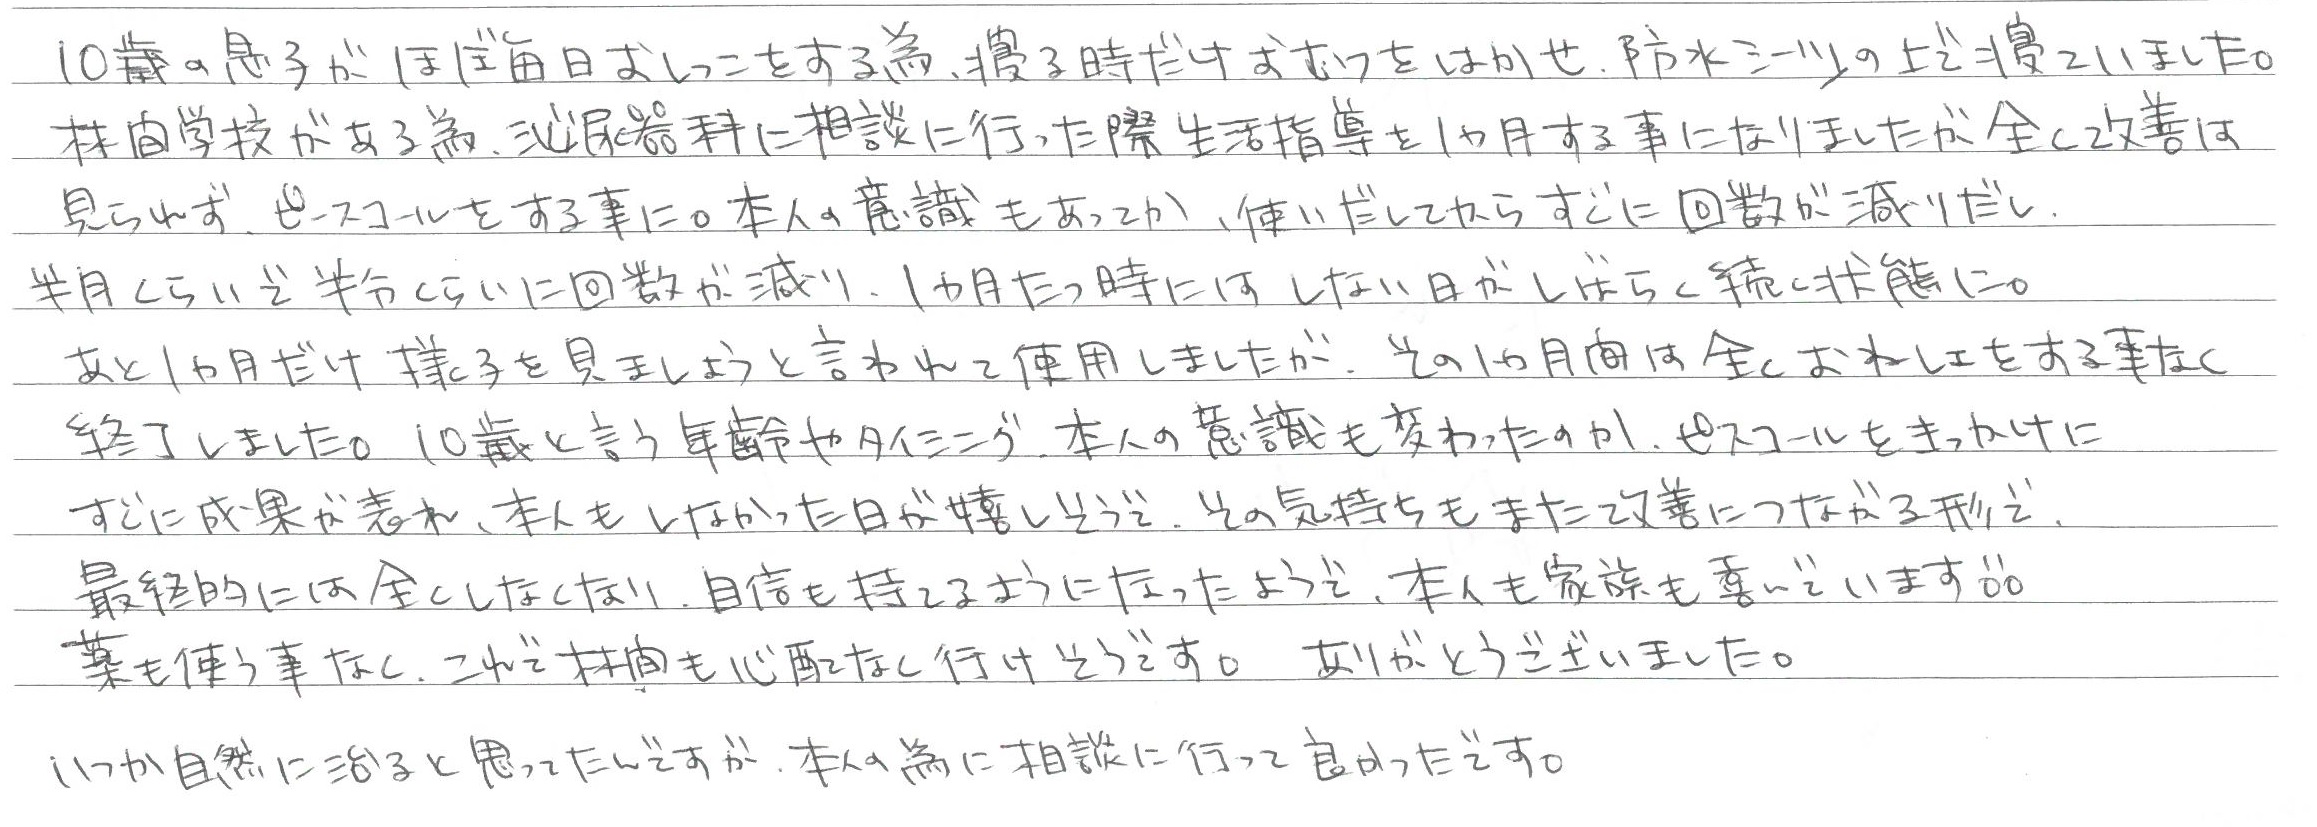 10歳の息子がほぼ毎日おしっこをする為、寝る時だけおむつをはかせ、防水シーツの上で寝ていました。
林間学校がある為、泌尿器科に相談に行った際生活指導を1ヵ月する事になりましたが全く改善は
見られず、ピースコールをする事に。本人の意識もあってか、使いだしてからすぐに回数が減りだし、
半月くらいで半分くらいに回数が減り、1ヵ月たつ時にはしない日がしばらく続く状態に。
あと1ヵ月だけ様子を見ましょうと言われて使用しましたが、その1ヵ月間は全くおねしょをする事なく
終了しました。10歳と言う年齢やタイミング、本人の意識も変わったのか、ピスコールをきっかけに
すぐに成果が表れ、本人もしなかった日が嬉しそうで、その気持ちもまた改善につながる形で、
最終的には全くしなくなり、自信も持てるようになったようで、本人も家族も喜んでいます
薬も使う事なく、これで林間も心配なく行けそうです。 ありがとうございました。
いつか自然に治ると思ってたんですが、本人の為に相談に行って良かったです。